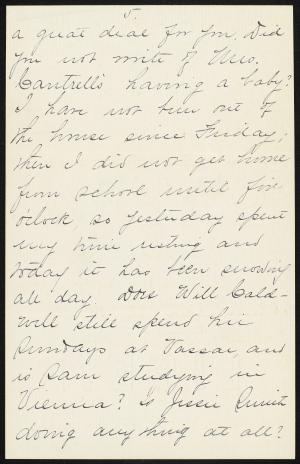 5.
a great deal for you. Did
you not write of Mrs.
Cantrell's having a baby?
I have not been out of
the house since Friday,
then I did not get home
from school until five
o'clock, so yesterday spent
my time resting and
today it has been snowing
all day. Does Will Cald-
well still spend his
Sundays at Vassar, and
is Sam studying in
Vienna? Is Jessie Smith
doing anything at all?